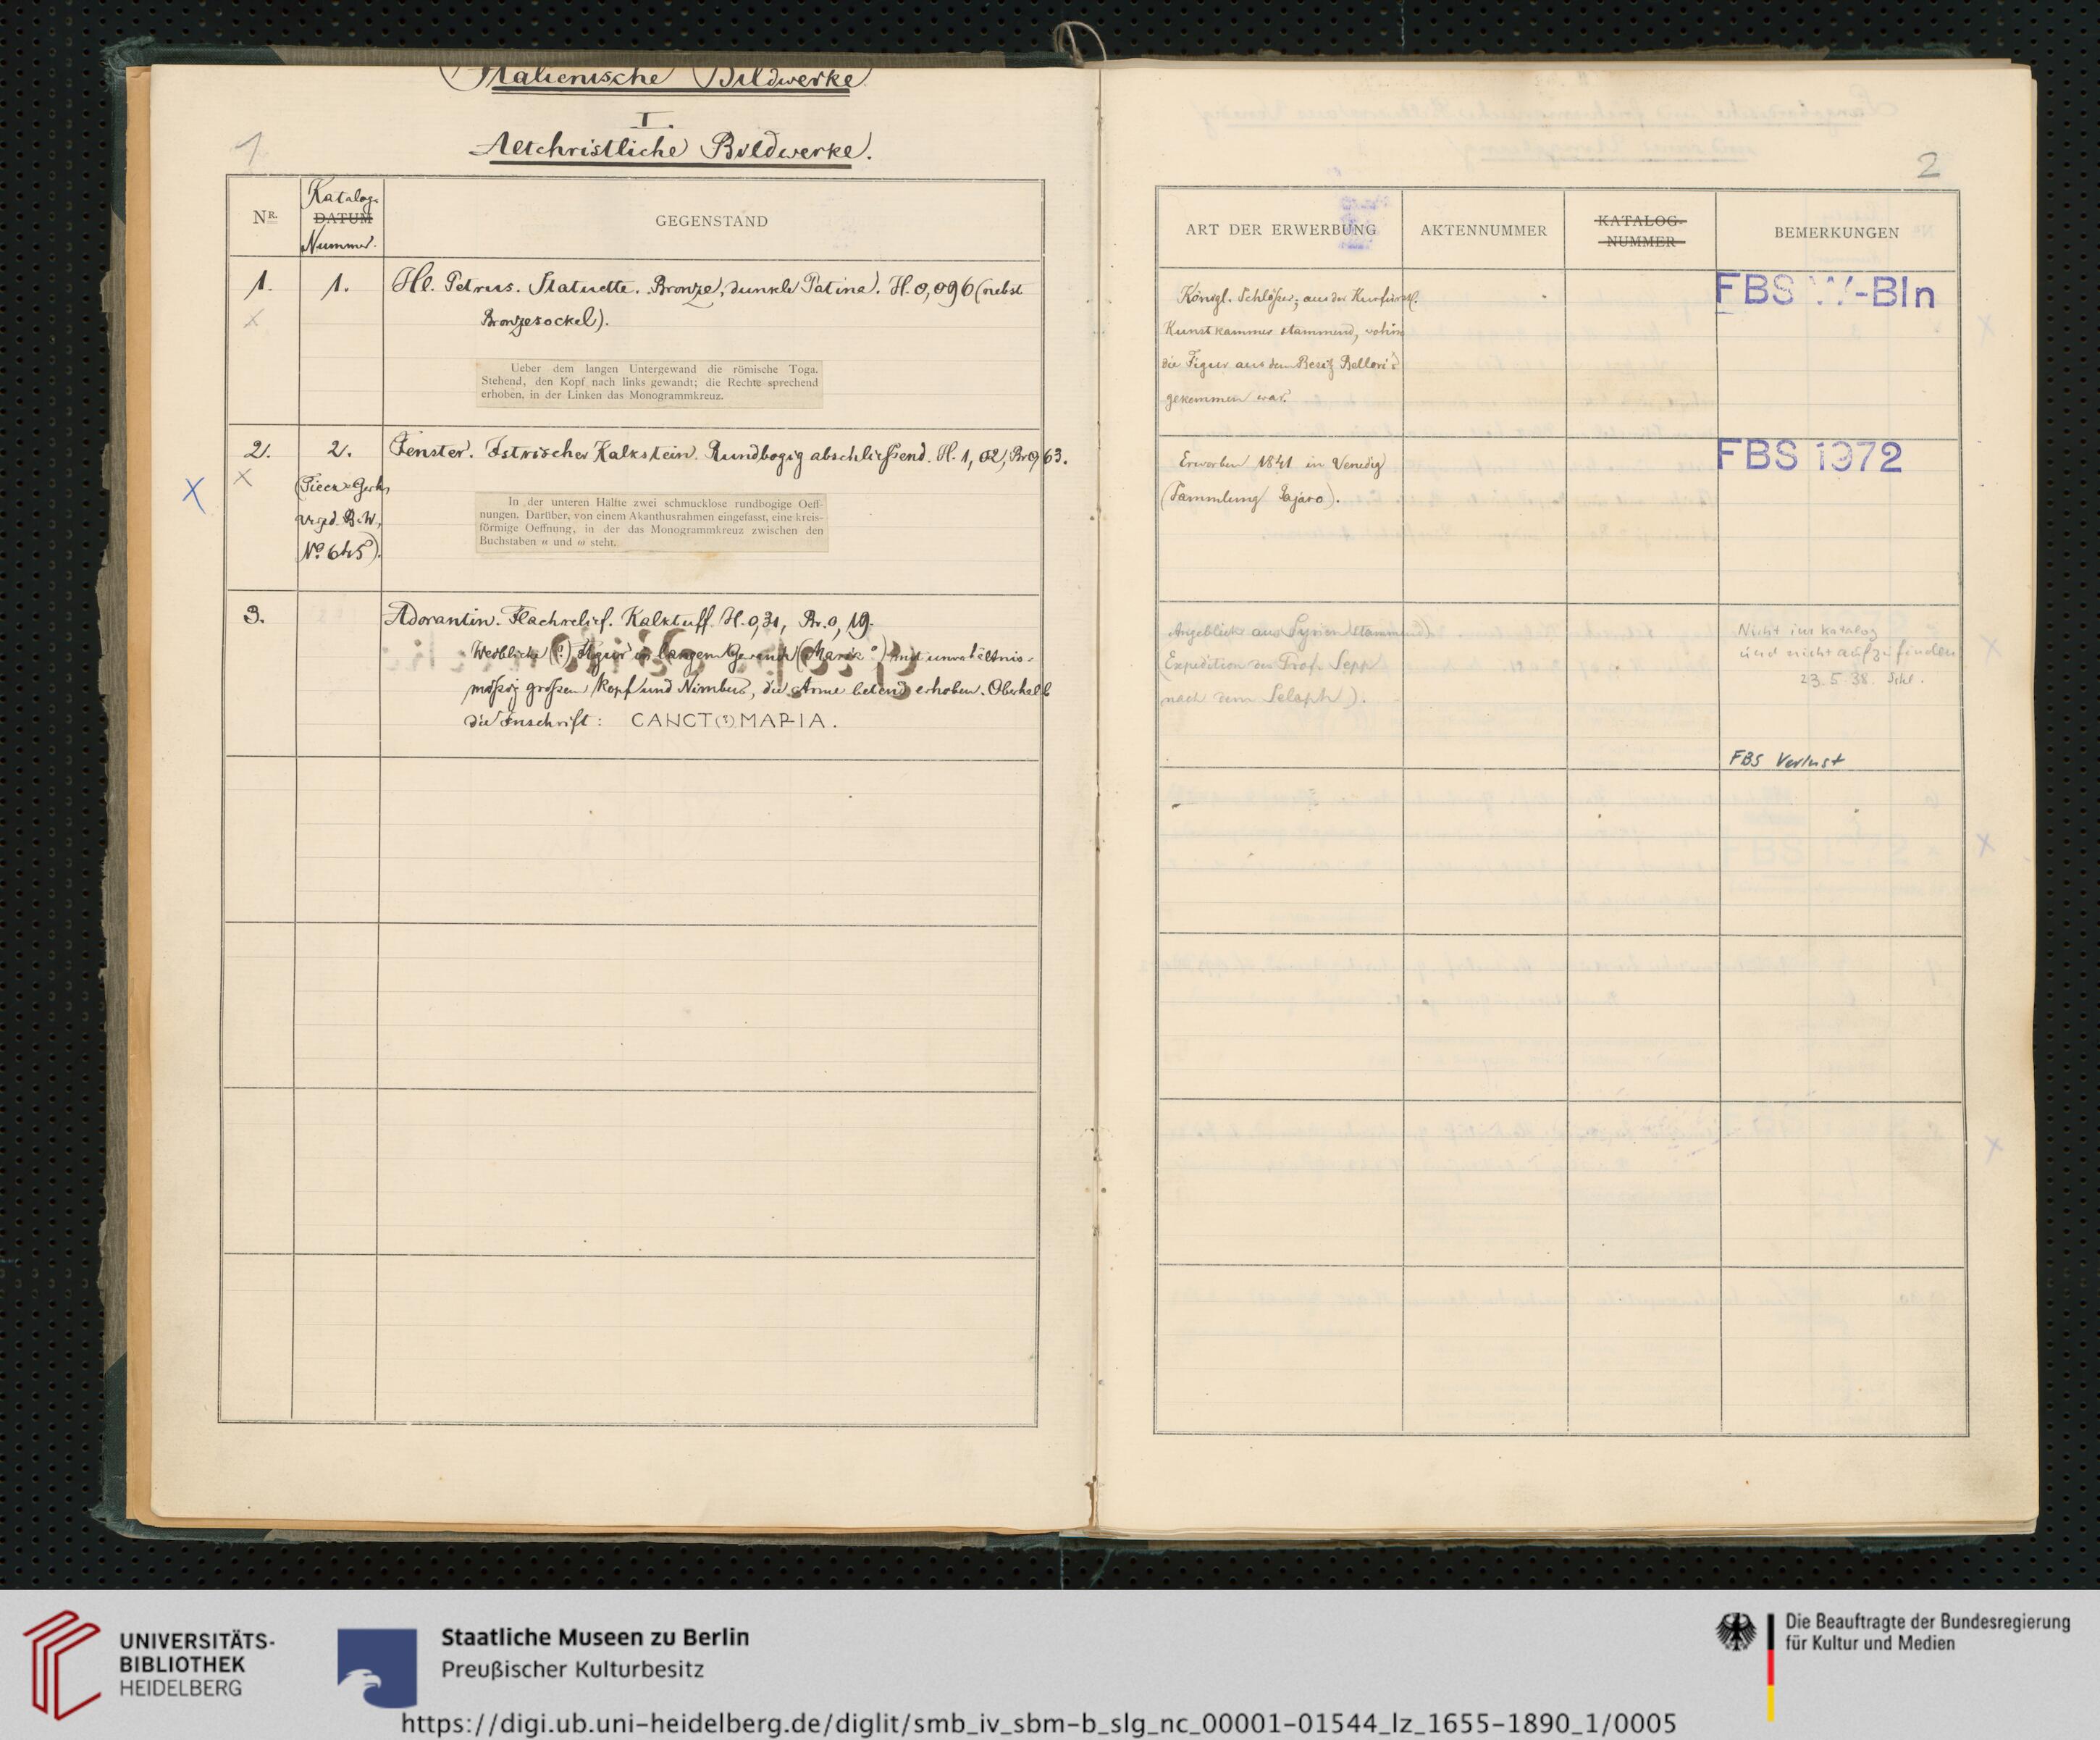 Italienische Bildwerke
I.
Altchristliche Bildwerke.
1
NR.
Katalog-
DATUM
Nummer.
GEGENSTAND
1.
1.
Hl. Petrus. Statuette. Bronze, dunkle Patina. H. 0,096 (nebst
Bronzesockel).
Ueber dem langen Untergewand die römische Toga.
Stehend, den Kopf nach links gewandt; die Rechte sprechend
erhoben, in der Linken das Monogrammkreuz.
2.
2.
Fenster. Istrischer Kalkstein. Rundbogig abschließend. H. 1,02, Br. 0,63.
X
X
X
vrgd. B.W.,
No. 645).
In der unteren Hälfte zwei schmucklose rundbogige Oeff-
nungen. Darüber, von einem Akanthusrahmen eingefasst, eine kreis-
förmige Oeffnung, in der das Monogrammkreuz zwischen den
Buchstaben α und ω steht.
3.
Adorantin. Flachrelief. Kalktuff. H. 0,31, Br. 0,19.
Weibliche (?) Figur in langem Gewande (Maria?) mit unverhältnis-
mäßig großem Kopf und Nimbus, die Arme betend erhoben. Oberhalb
die Inschrift: CANCT(?) MARIA.
2
ART DER ERWERBUNG
AKTENNUMMER
KATALOG-
NUMMER
BEMERKUNGEN
Königl. Schlösser; aus der Kurfürstl.
Kunstkammer stammend, wohin
die Figur aus dem Besitz Bellori's
gekommen war.
FBS W-Bln
Erworben 1841 in Venedig
(Sammlung Pajaro).
FBS 1972
Angeblich aus Syrien stammend
(Expedition des Prof. Sepp
nach dem Selaph).
Nicht im Katalog
und nicht aufzufinden
23.5.38.
FBS Verlust
UNIVERSITÄTS-
BIBLIOTHEK
HEIDELBERG
Staatliche Museen zu Berlin
Preußischer Kulturbesitz
Die Beauftragte der Bundesregierung
für Kultur und Medien
https://digi.ub.uni-heidelberg.de/diglit/smb_iv_sbm-b_slg_nc_00001-01544_lz_1655-1890_1/0005